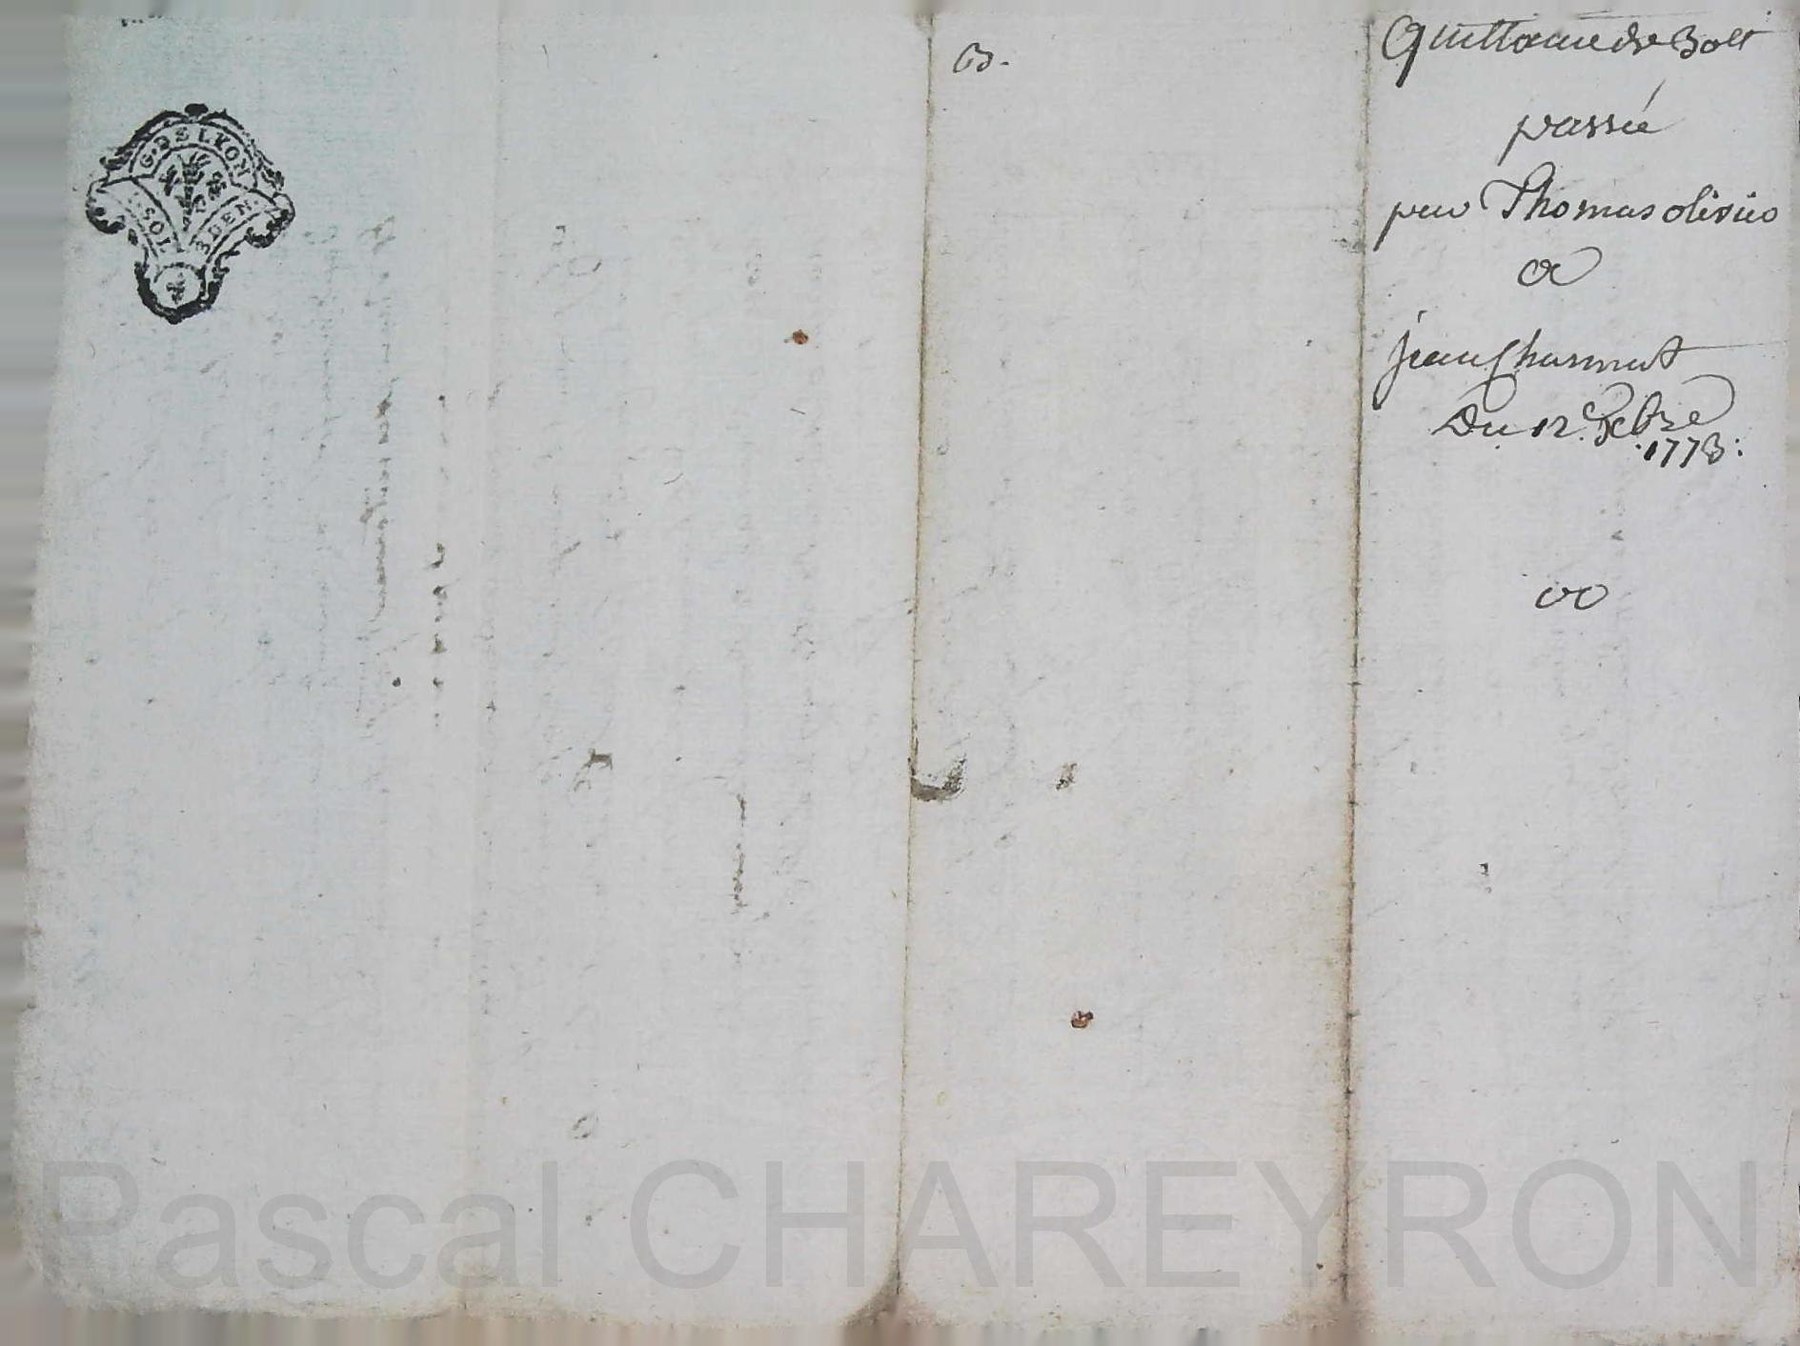 G. DE LYON
SOL 3 DEN.
B.
Quittance de 30ll
passée
par Thomas olivier
a
jean Charmat
Du 12 Xbre
1773.
Pascal CHAREYRON